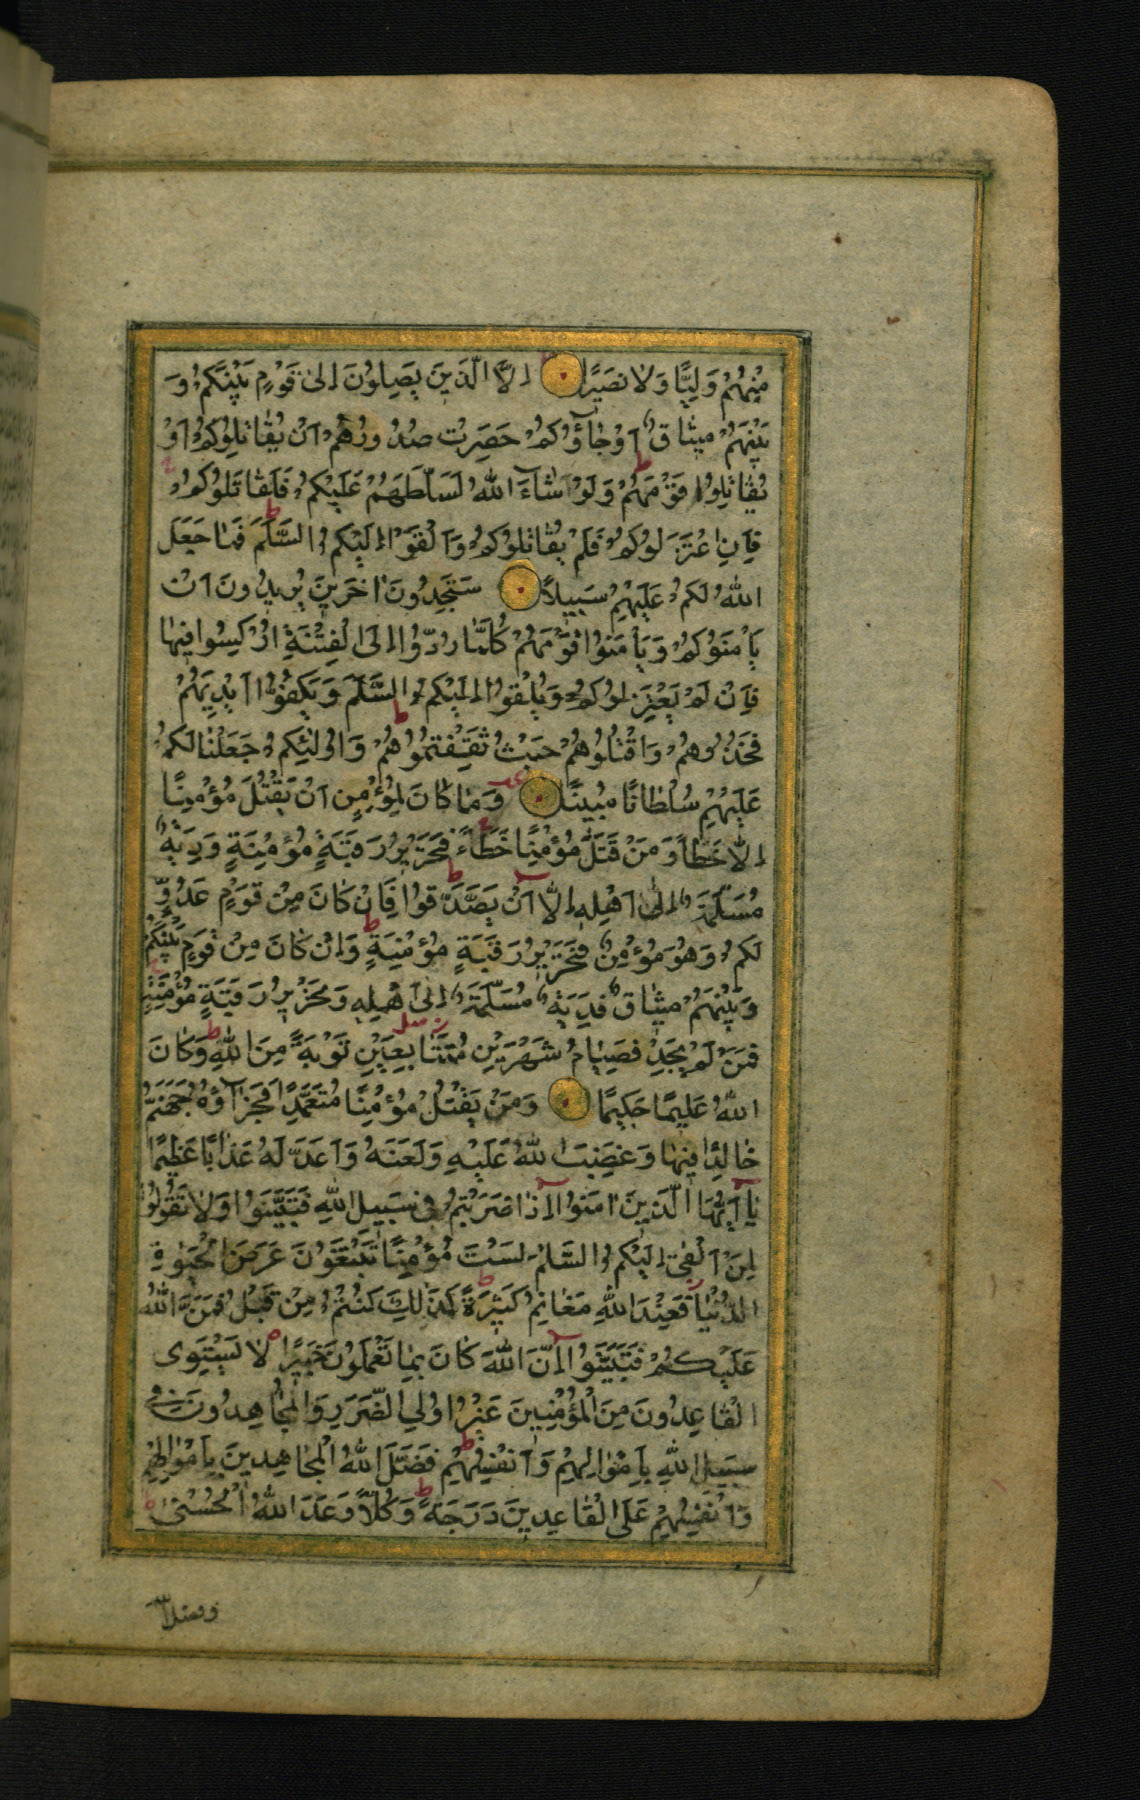 مِنْهُمْ وَلِيًّا وَلَا نَصِيرًا اِلَّا الَّذِينَ يَصِلُونَ اِلٰى قَوْمٍ بَيْنَكُمْ وَ
بَيْنَهُمْ مِيثَاقٌ اَوْ جَاؤُكُمْ حَصِرَتْ صُدُورُهُمْ اَنْ يُقَاتِلُوكُمْ اَوْ
يُقَاتِلُوا قَوْمَهُمْ وَلَوْ شَاءَ اللهُ لَسَلَّطَهُمْ عَلَيْكُمْ فَلَقَاتَلُوكُمْ
فَاِنِ اعْتَزَلُوكُمْ فَلَمْ يُقَاتِلُوكُمْ وَاَلْقَوْا اِلَيْكُمُ السَّلَمَ فَمَا جَعَلَ
اللهُ لَكُمْ عَلَيْهِمْ سَبِيلًا سَتَجِدُونَ اٰخَرِينَ يُرِيدُونَ اَنْ
يَأْمَنُوكُمْ وَيَأْمَنُوا قَوْمَهُمْ كُلَّمَا رُدُّوا اِلَى الْفِتْنَةِ اُرْكِسُوا فِيهَا
فَاِنْ لَمْ يَعْتَزِلُوكُمْ وَيُلْقُوا اِلَيْكُمُ السَّلَمَ وَيَكُفُّوا اَيْدِيَهُمْ
فَخُذُوهُمْ وَاقْتُلُوهُمْ حَيْثُ ثَقِفْتُمُوهُمْ وَاُولٰئِكُمْ جَعَلْنَا لَكُمْ
عَلَيْهِمْ سُلْطَانًا مُبِينًا وَمَا كَانَ لِمُؤْمِنٍ اَنْ يَقْتُلَ مُؤْمِنًا
اِلَّا خَطَأً وَمَنْ قَتَلَ مُؤْمِنًا خَطَأً فَتَحْرِيرُ رَقَبَةٍ مُؤْمِنَةٍ وَدِيَةٌ
مُسَلَّمَةٌ اِلٰى اَهْلِهِ اِلَّا اَنْ يَصَّدَّقُوا فَاِنْ كَانَ مِنْ قَوْمٍ عَدُوٍّ
لَكُمْ وَهُوَ مُؤْمِنٌ فَتَحْرِيرُ رَقَبَةٍ مُؤْمِنَةٍ وَاِنْ كَانَ مِنْ قَوْمٍ بَيْنَكُمْ
وَبَيْنَهُمْ مِيثَاقٌ فَدِيَةٌ مُسَلَّمَةٌ اِلٰى اَهْلِهِ وَتَحْرِيرُ رَقَبَةٍ مُؤْمِنَةٍ
فَمَنْ لَمْ يَجِدْ فَصِيَامُ شَهْرَيْنِ مُتَتَابِعَيْنِ تَوْبَةً مِنَ اللهِ وَكَانَ
اللهُ عَلِيمًا حَكِيمًا وَمَنْ يَقْتُلْ مُؤْمِنًا مُتَعَمِّدًا فَجَزَاؤُهُ جَهَنَّمُ
خَالِدًا فِيهَا وَغَضِبَ اللهُ عَلَيْهِ وَلَعَنَهُ وَاَعَدَّ لَهُ عَذَابًا عَظِيمًا
يَا اَيُّهَا الَّذِينَ اٰمَنُوا اِذَا ضَرَبْتُمْ فِي سَبِيلِ اللهِ فَتَبَيَّنُوا وَلَا تَقُولُوا
لِمَنْ اَلْقٰى اِلَيْكُمُ السَّلَمَ لَسْتَ مُؤْمِنًا تَبْتَغُونَ عَرَضَ الْحَيٰوةِ
الدُّنْيَا فَعِنْدَ اللهِ مَغَانِمُ كَثِيرَةٌ كَذٰلِكَ كُنْتُمْ مِنْ قَبْلُ فَمَنَّ اللهُ
عَلَيْكُمْ فَتَبَيَّنُوا اِنَّ اللهَ كَانَ بِمَا تَعْمَلُونَ خَبِيرًا لَا يَسْتَوِى
الْقَاعِدُونَ مِنَ الْمُؤْمِنِينَ غَيْرُ اُولِي الضَّرَرِ وَالْمُجَاهِدُونَ فِي
سَبِيلِ اللهِ بِاَمْوَالِهِمْ وَاَنْفُسِهِمْ فَضَّلَ اللهُ الْمُجَاهِدِينَ بِاَمْوَالِهِمْ
وَاَنْفُسِهِمْ عَلَى الْقَاعِدِينَ دَرَجَةً وَكُلًّا وَعَدَ اللهُ الْحُسْنٰى
وفضل الله